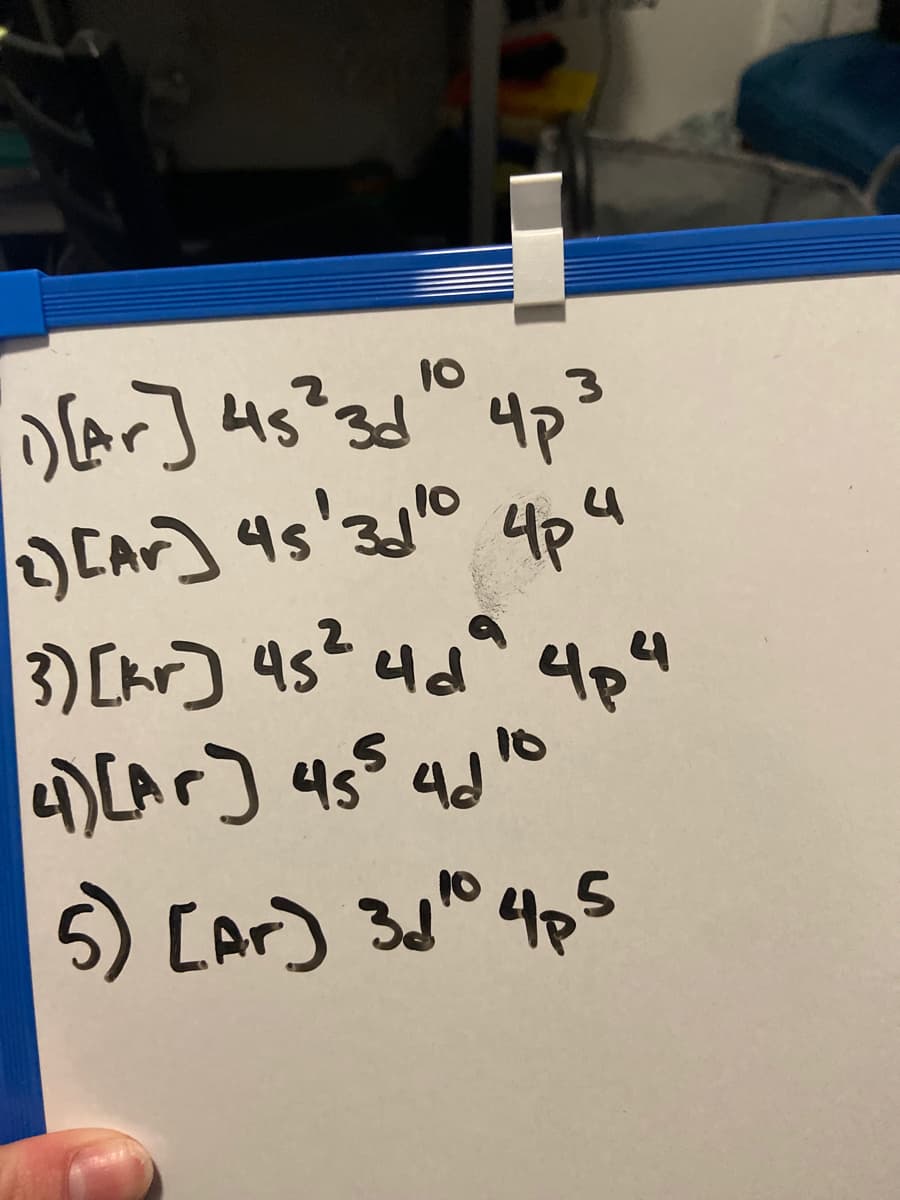 1) [Ar] 4s² 3d¹⁰ 4p³
2) [Ar] 4s¹ 3d¹⁰ 4p⁴
3) [Kr] 4s² 4d⁹ 4p⁴
4) [Ar] 4s⁵ 4d¹⁰
5) [Ar] 3d¹⁰ 4p⁵